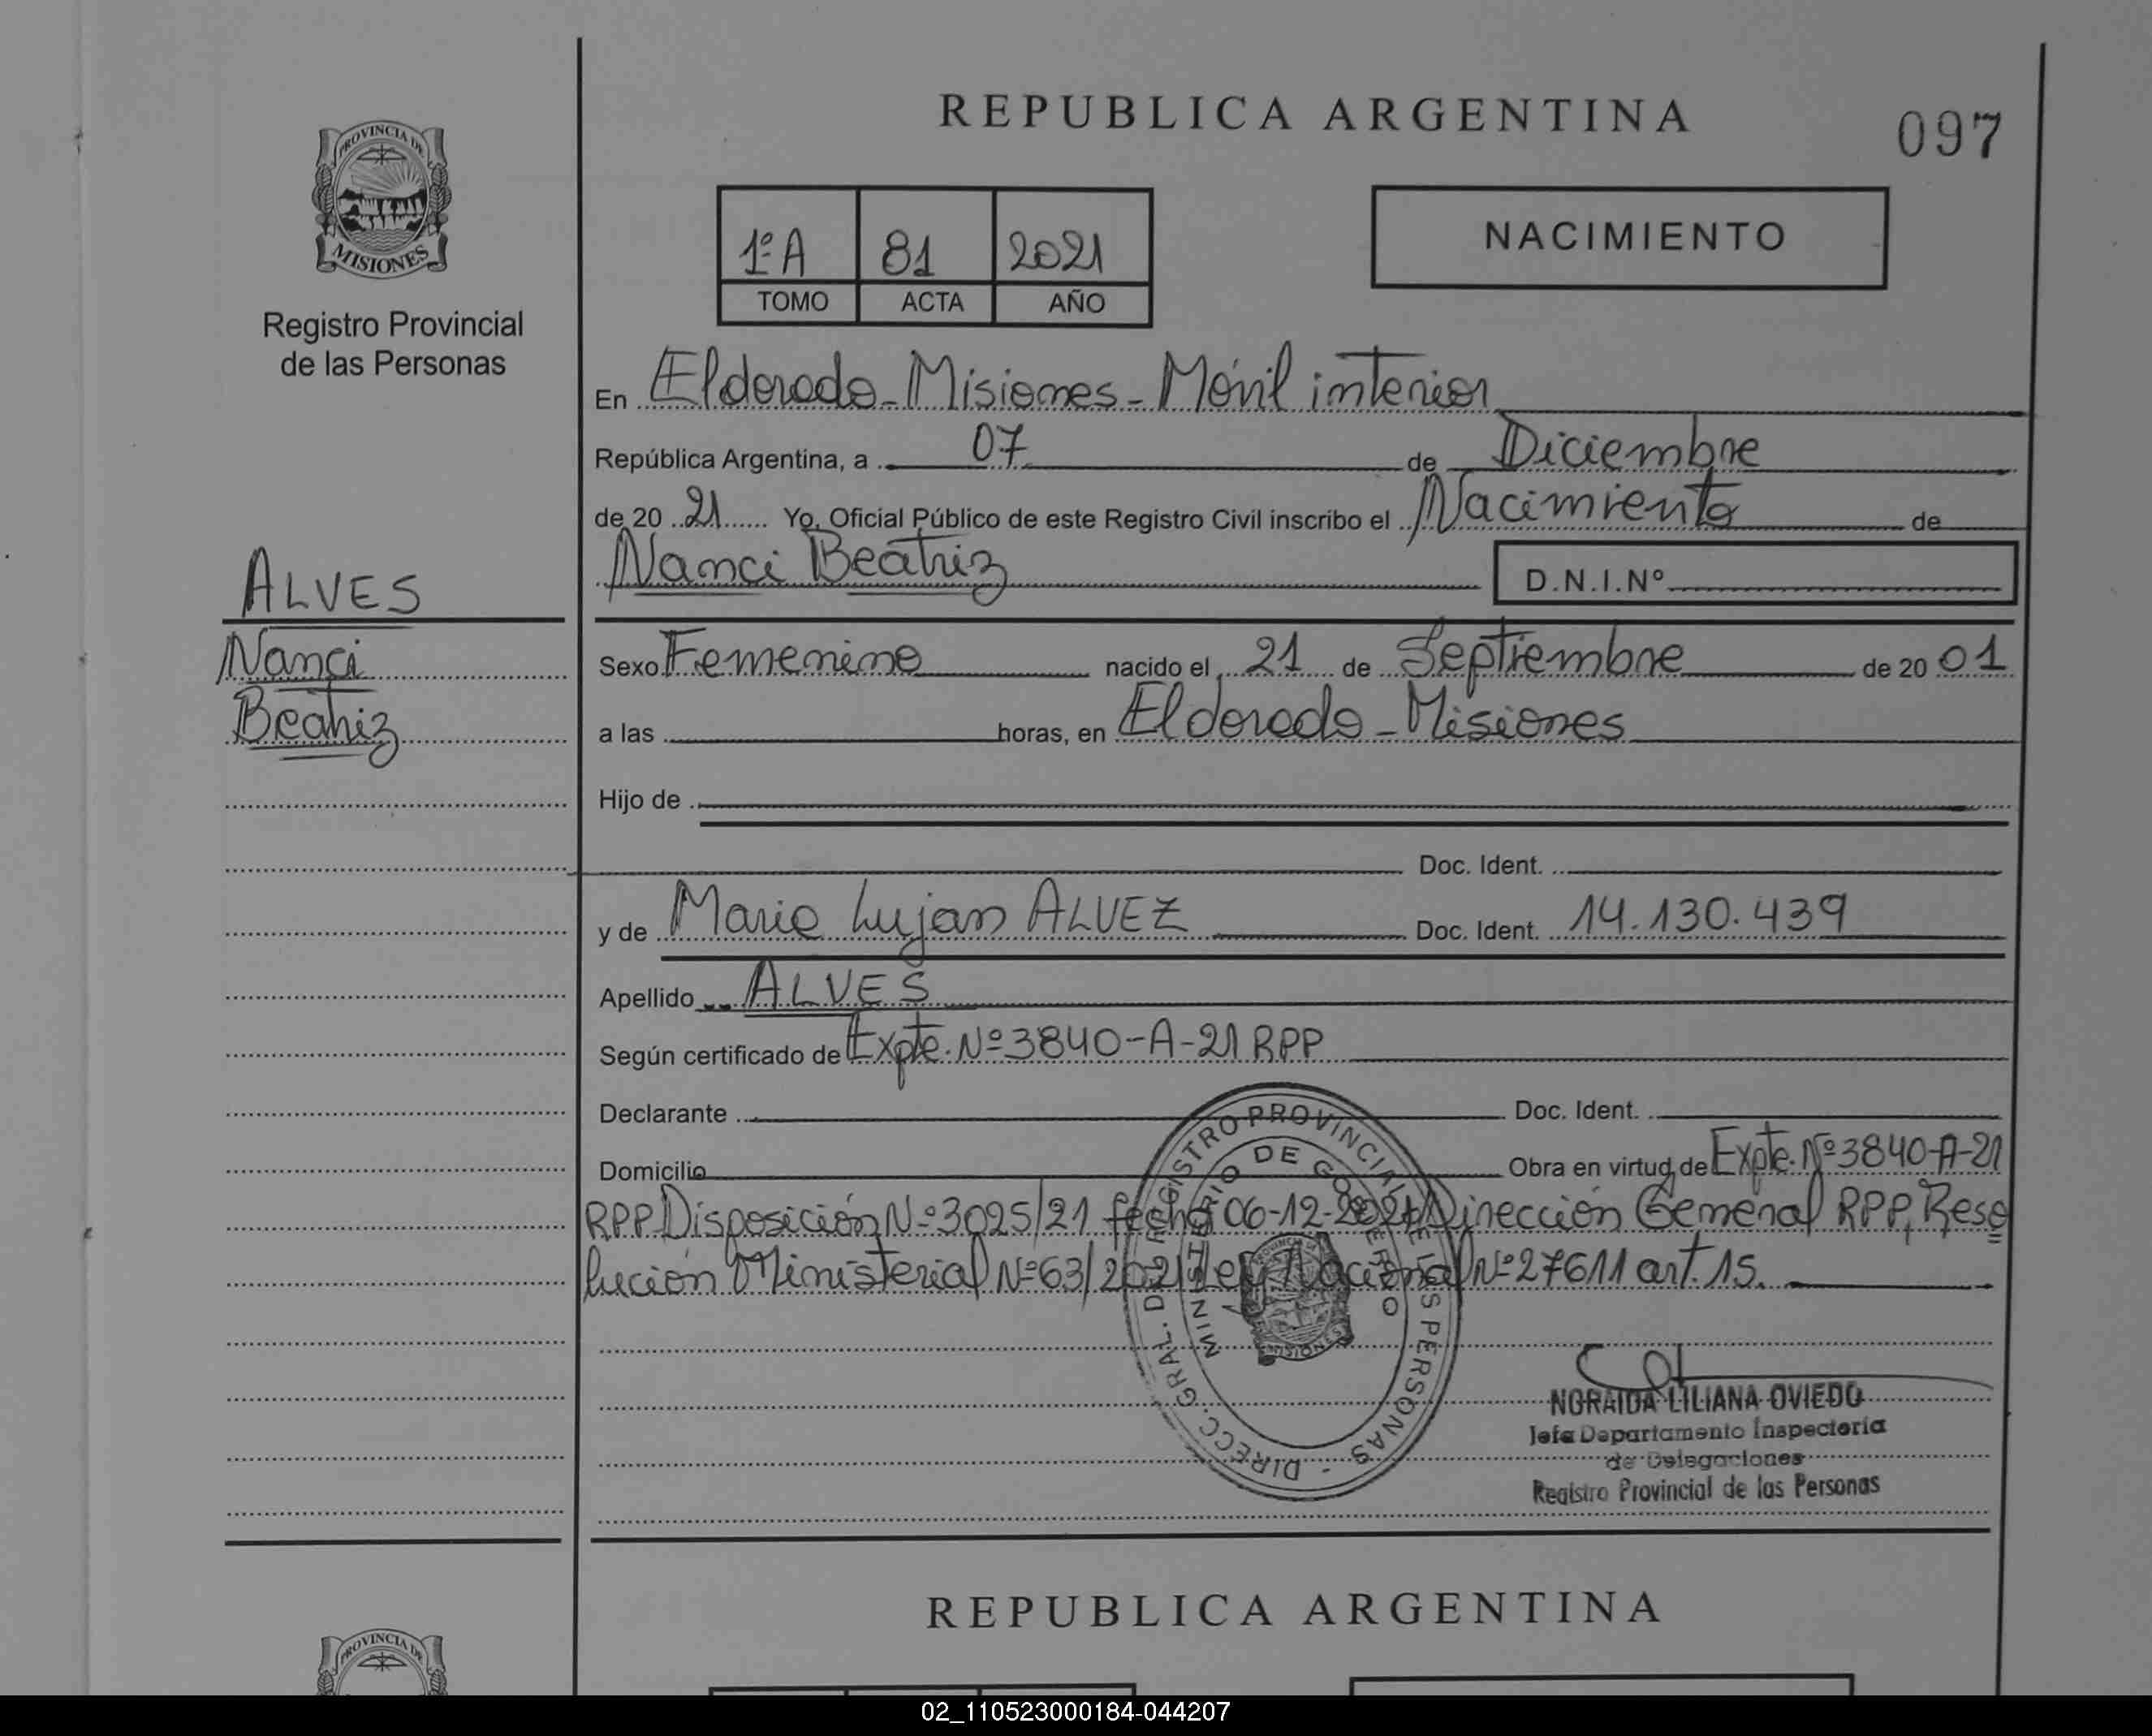 REPUBLICA ARGENTINA
097
PROVINCIA DE
MISIONES
Registro Provincial
de las Personas
1º A 81 2021
TOMO ACTA AÑO
NACIMIENTO
En Eldorado - Misiones - Móvil interior
República Argentina, a 07 de Diciembre
de 20 21 Yo, Oficial Público de este Registro Civil inscribo el Nacimiento de
Nanci Beatriz D.N.I.Nº
ALVES
Nanci
Beatriz
Sexo Femenino nacido el 21 de Septiembre de 20 01
a las horas, en Eldorado - Misiones
Hijo de
Doc. Ident.
y de Maria Lujan ALVEZ Doc. Ident. 14.130.439
Apellido ALVES
Según certificado de Expte. Nº 3840-A-21 RPP
Declarante Doc. Ident.
Domicilio Obra en virtud de Expte. Nº 3840-A-21
RPP Disposición Nº 3025/21 fecha 06-12-2021 Dirección General RPP, Reso
lución Ministerial Nº 63/2021 Ley Nacional Nº 27611 art. 15.
DIRECC. GRAL. DE REGISTRO PROVINCIAL DE LAS PERSONAS -
MINISTERIO DE GOBIERNO
PROVINCIA DE
MISIONES
NORAIDA LILIANA OVIEDO
Jefa Departamento Inspectoría
de Delegaciones
Registro Provincial de las Personas
REPUBLICA ARGENTINA
PROVINCIA DE
02_110523000184-044207